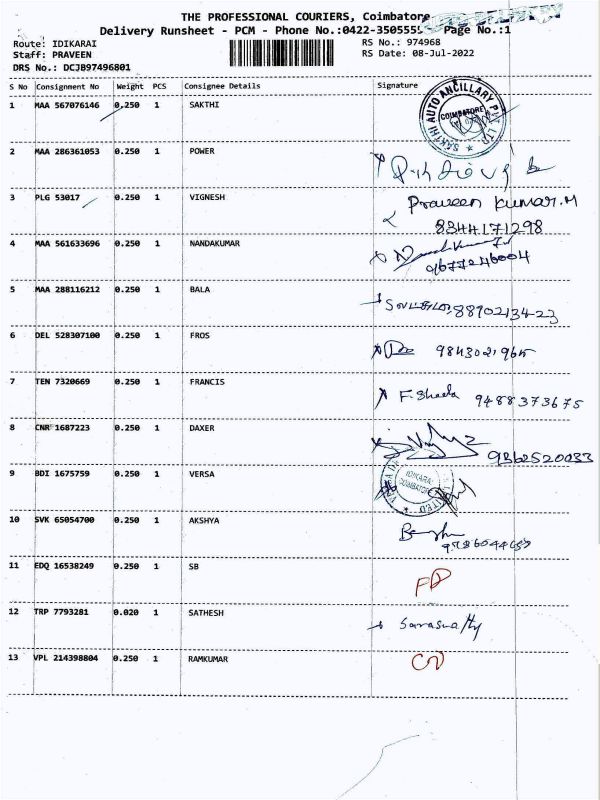 THE PROFESSIONAL COURIERS, Coimbatore
Delivery Runsheet - PCM - Phone No.:0422-3505555 Page No.:1
Route: IDIKARAI RS No.: 974968
Staff: PRAVEEN RS Date: 08-Jul-2022
DRS No.: DCJB97496801
S No Consignment No Weight PCS Consignee Details Signature
1 MAA 567076146 0.250 1 SAKTHI SAKTHI AUTO ANCILLARY PVT LTD COIMBATORE
2 MAA 286361053 0.250 1 POWER
3 PLG 53017 0.250 1 VIGNESH Praveen Kumar.M
8344171298
4 MAA 561633696 0.250 1 NANDAKUMAR
9677246004
5 MAA 288116212 0.250 1 BALA 8890213423
6 DEL 528307100 0.250 1 FROS
7 TEN 7320669 0.250 1 FRANCIS F. Sheela 9488373675
8 CNR 1687223 0.250 1 DAXER 9362520033
9 BDI 1675759 0.250 1 VERSA IDIKARAI COIMBATORE
10 SVK 65054700 0.250 1 AKSHYA
11 EDQ 16538249 0.250 1 SB
12 TRP 7793281 0.020 1 SATHESH Saraswathy
13 VPL 214398804 0.250 1 RAMKUMAR